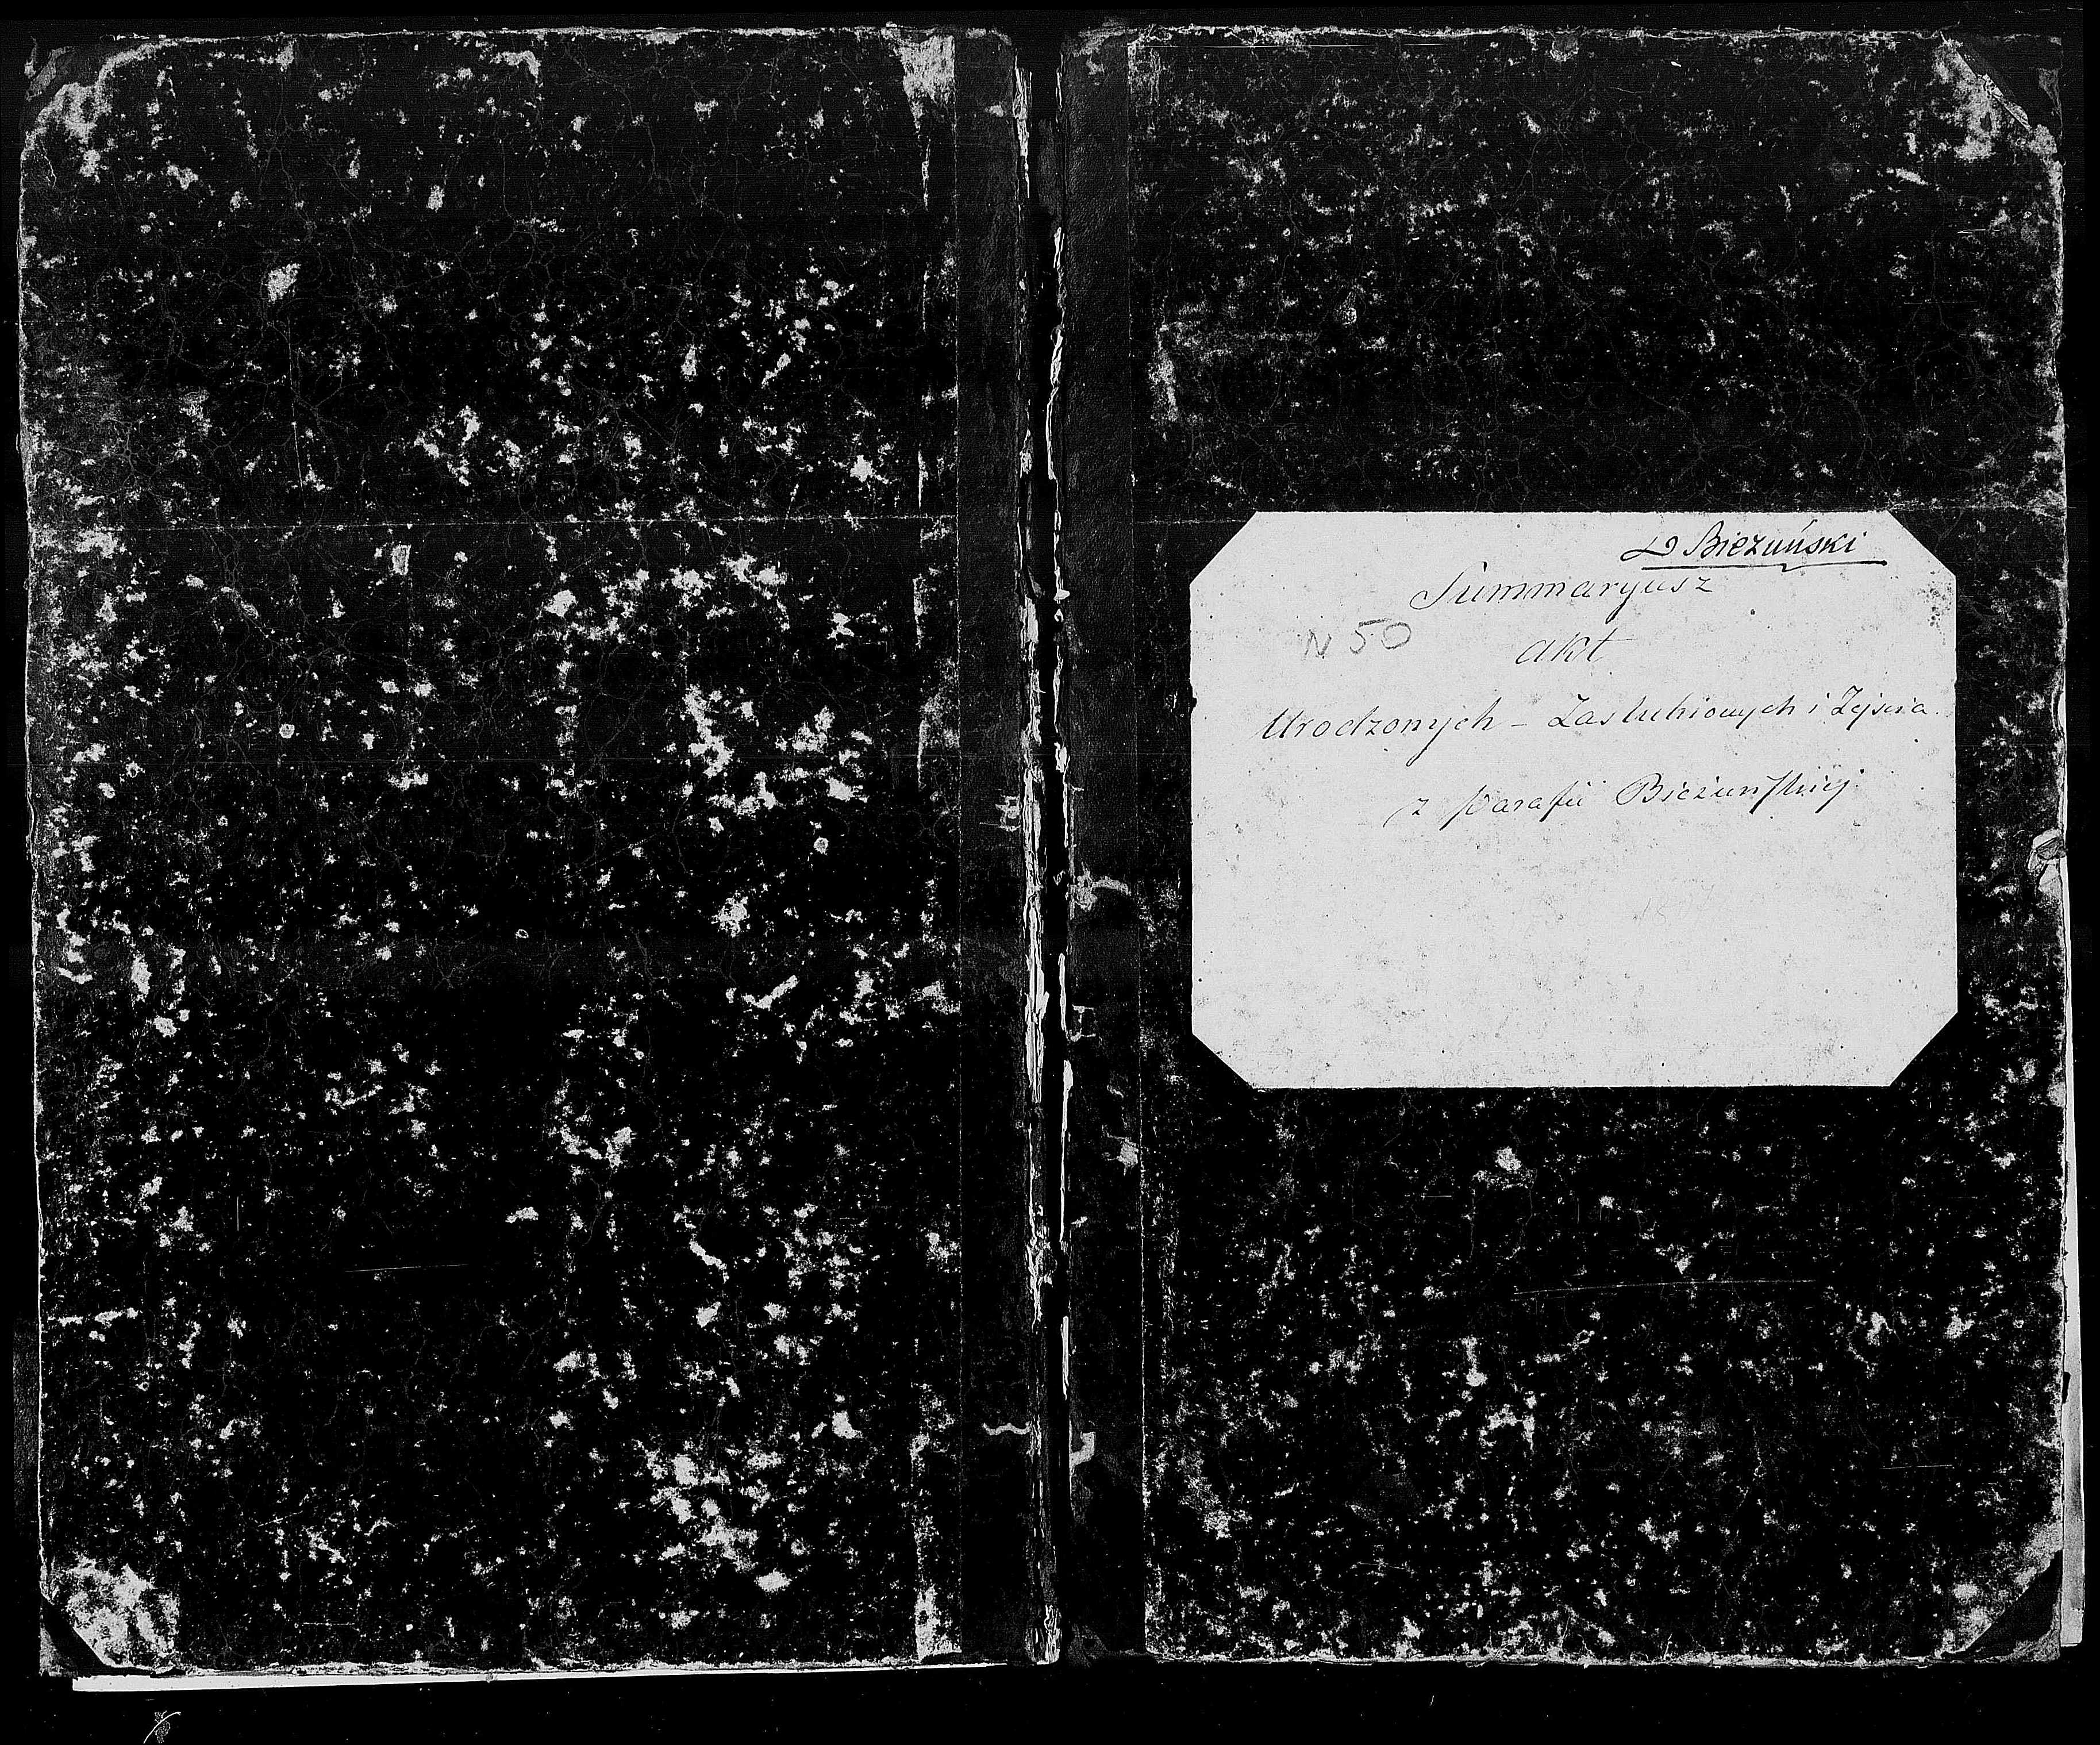 D Bieżuński
Summaryusz
N 50
akt
Urodzonych - Zaslubionych i Zejscia
z parafii Bieżunskiej